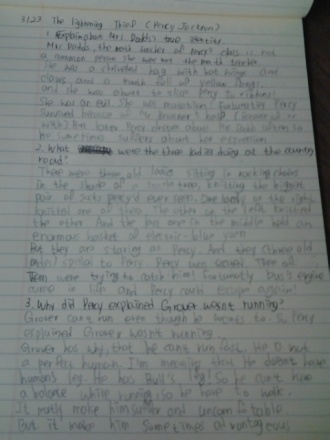 31,23 The lightning Thief (Percy Jackson)
1. Explain how Mrs. Dodds's true identity.
Mrs. Dodds, the math teacher of Percy' class is not
a common person she was not the math teacher.
She was a shriveled hag with bat wings and
claws and a mouth full of yellow fangs,
and she was about to slice Percy to ribbons!
She was an evil. She was mutation! Fortunatley Percy
Survived because of Mr. Brunner's help
with) But later Percy
he sometimes suffers about her
2. What were the three ladies doing at the country
road?
There were three old ladies sitting in rocking chairs
in the shade of a tree, knitting the biggest
pair of socks percy'd ever seen. One lady on the right
knitted one of them. The other on the left knitted
the other. And the one in the middle held an
enormous basket of electric-blue yarn.
But they are staring at Percy. And they
to Percy. Percy was scared. Three of
Them were trying to catch him! Fortunatly Bus's engine
came in life and Percy could escape again!
3. Why did Percy explained Grover wasn't running?
Grover can't run even though he wants to. So Percy
explained Grover wasn't running.
Grover has why, that he can't run fast. He is not
a perfect human. I'm meaning that He doesn't have
human's leg. He has Bull's leg! So he can't have
a balance while running, so he have to walk.
It might make him and uncomfortable.
But it make him Sometimes advantageous.